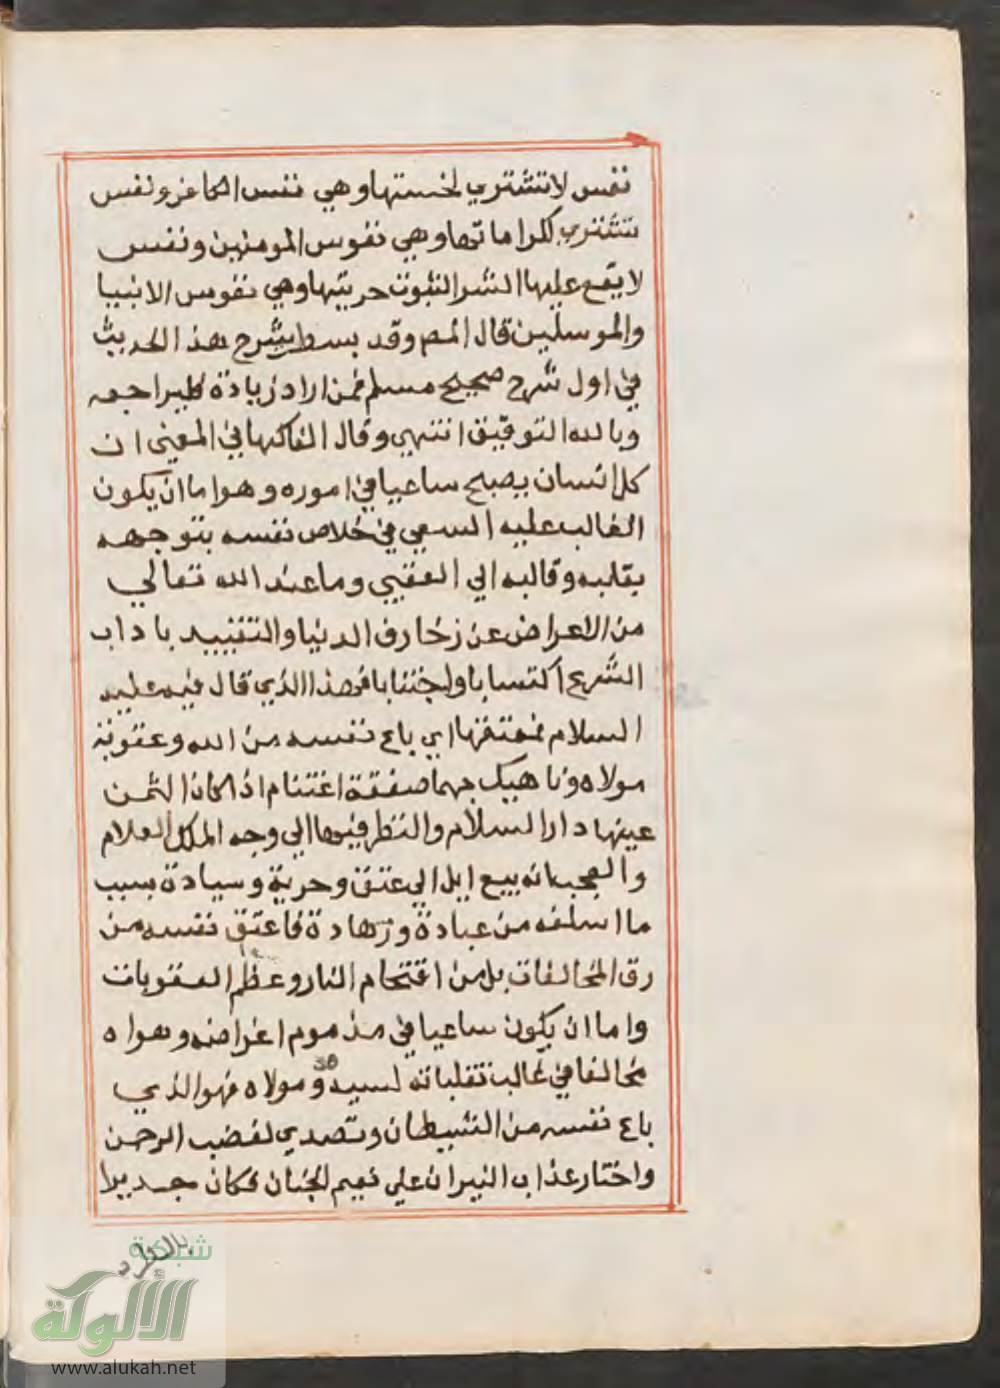 نفس لا تشتري لخستها وهي نفس الكافر ونفس
تشتري لكراماتها وهي نفوس المومنين ونفس
لا يقع عليها الشرا لثبوت حريتها وهي نفوس الانبيا
والمرسلين قال المصم وقد بسط شرح هذا الحديث
في اول شرح صحيح مسلم فمن اراد زيادة فليراجعه
وبالله التوفيق انتهي وقال الفاكهاني المعني ان
كل انسان يصبح ساعيا في اموره وهو اما ان يكون
الغالب عليه السعي في خلاص نفسه بتوجهه
بقلبه وقالبه الي العقبي وما عند الله تعالي
من الاعراض عن زخارف الدنيا والتقييد باداب
الشرع اكتسابا واجتنابا فهذا الذي قال فيه عليه
السلام فمعتقها اي باع نفسه من الله وعقوبة
مولاه وناهيك بهما صفقة اغتنام اذا كان الثمن
عينها دار السلام والنظر فيها الي وجه الملك العلام
والعجب انه بيع ايل الي عتق وحرية وسيادة بسبب
ما اسلفه من عبادة وزهادة فاعتق نفسه من
رق المخالفات بل من اقتحام النار وعظم العقوبات
واما ان يكون ساعيا في مذموم اغراضه وهواه
مخالفا في غالب تقلباته لسيده ومولاه فهو الذي
باع نفسه من الشيطان وتصدي لغضب الرحمن
واختار عذاب النيران علي نعيم الجنان فكان جديرا
بالطرد
شبكة
الألوكة
www.alukah.net